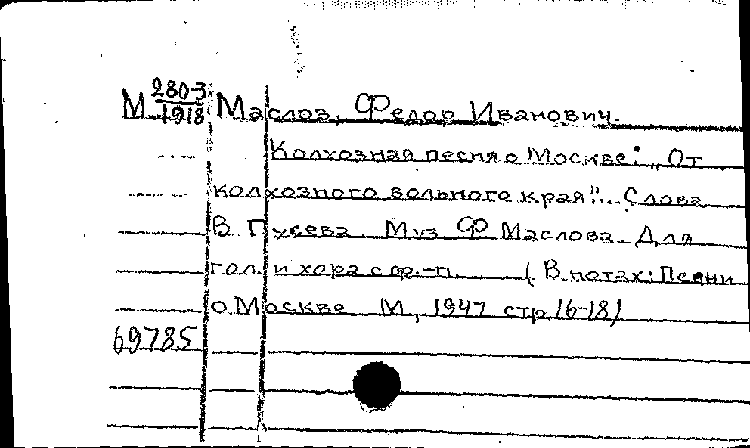 М 280-3/1918 Маслов, Федор Иванович.
Колхозная песня о Москве: „От
колхозного вольного края". Слова
В. Гусева. Муз Ф Маслова. Для
гол. и хора с ф.-п. (В нотах: Песни
о Москве М, 1947 стр 16-18)
69785